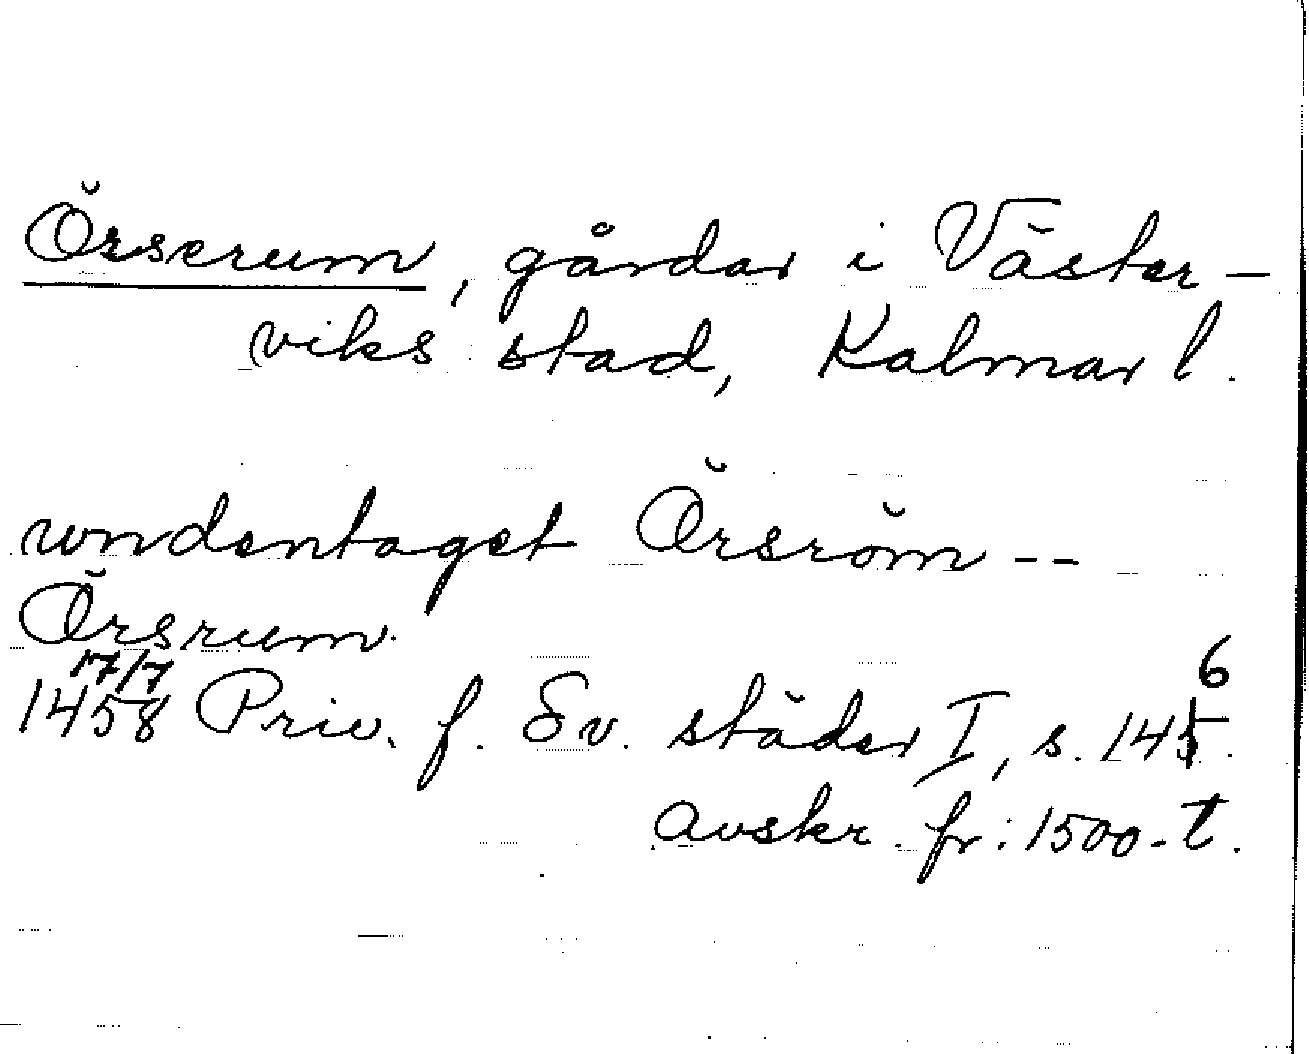 Örserum, gårdar i Väster-
viks stad, Kalmar l.
wndentaget Örsröm --
Örsrum
17/7
1458 Priv. f. Sv. städer I, s. 146.
avskr. fr. 1500-t.